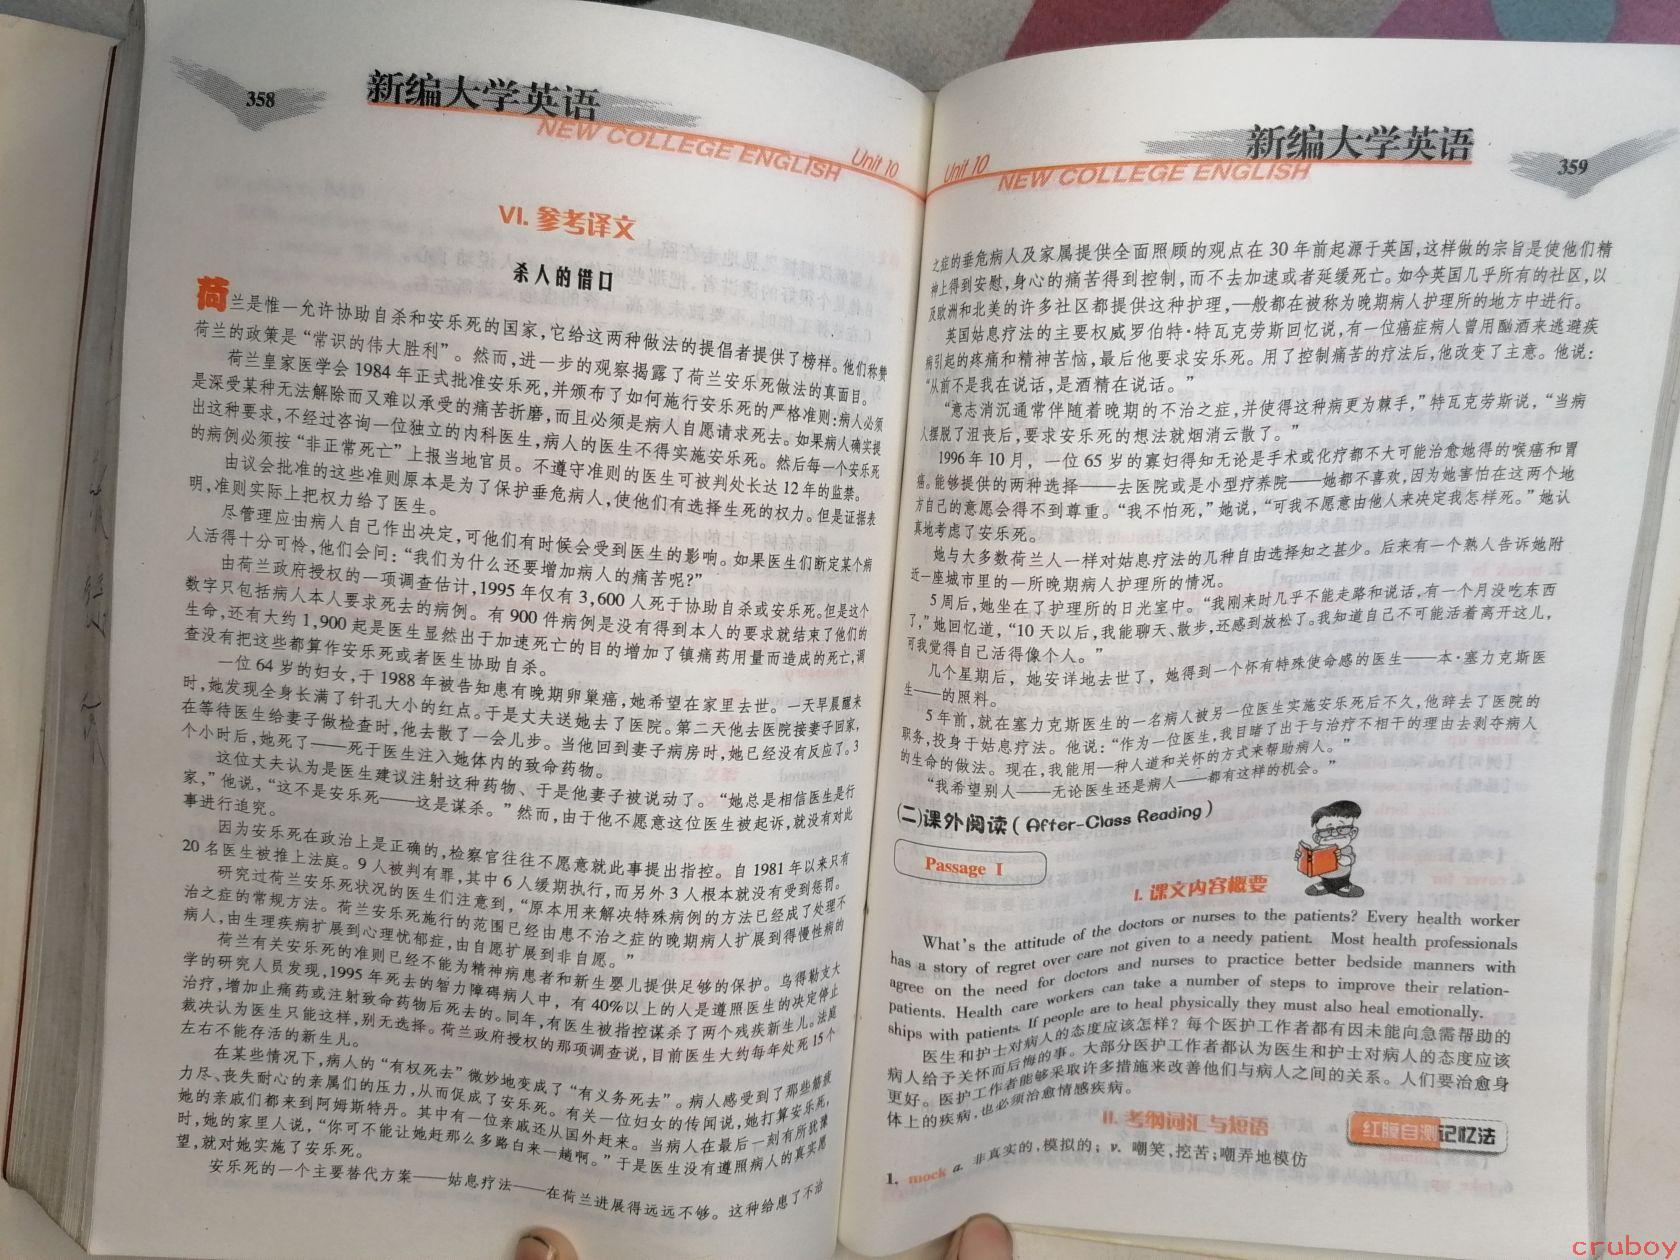 358
新编大学英语
NEW COLLEGE ENGLISH
Unit 10
VI. 参考译文
杀人的借口
荷兰是惟一允许协助自杀和安乐死的国家,它给这两种做法的提倡者提供了榜样。他们称赞
荷兰的政策是“常识的伟大胜利”。然而,进一步的观察揭露了荷兰安乐死做法的真面目。
荷兰皇家医学会 1984 年正式批准安乐死,并颁布了如何施行安乐死的严格准则:病人必须
是深受某种无法解除而又难以承受的痛苦折磨,而且必须是病人自愿请求死去。如果病人确实提
出这种要求,不经过咨询一位独立的内科医生,病人的医生不得实施安乐死。然后每一个安乐死
的病例必须按“非正常死亡”上报当地官员。不遵守准则的医生可被判处长达 12 年的监禁。
由议会批准的这些准则原本是为了保护垂危病人,使他们有选择生死的权力。但是证据表
明,准则实际上把权力给了医生。
尽管理应由病人自己作出决定,可他们有时候会受到医生的影响。如果医生们断定某个病
人活得十分可怜,他们会问:“我们为什么还要增加病人的痛苦呢?”
由荷兰政府授权的一项调查估计,1995 年仅有 3,600 人死于协助自杀或安乐死。但是这个
数字只包括病人本人要求死去的病例。有 900 件病例是没有得到本人的要求就结束了他们的
生命,还有大约 1,900 起是医生显然出于加速死亡的目的增加了镇痛药用量而造成的死亡,调
查没有把这些都算作安乐死或者医生协助自杀。
一位 64 岁的妇女,于 1988 年被告知患有晚期卵巢癌,她希望在家里去世。一天早晨醒来
时,她发现全身长满了针孔大小的红点。于是丈夫送她去了医院。第二天他去医院接妻子回家,
在等待医生给妻子做检查时,他去散了一会儿步。当他回到妻子病房时,她已经没有反应了。3
个小时后,她死了——死于医生注入她体内的致命药物。
这位丈夫认为是医生建议注射这种药物、于是他妻子被说动了。“她总是相信医生是行
家,”他说,“这不是安乐死——这是谋杀。”然而,由于他不愿意这位医生被起诉,就没有对此
事进行追究。
因为安乐死在政治上是正确的,检察官往往不愿意就此事提出指控。自 1981 年以来只有
20 名医生被推上法庭。9 人被判有罪,其中 6 人缓期执行,而另外 3 人根本就没有受到惩罚。
研究过荷兰安乐死状况的医生们注意到,“原本用来解决特殊病例的方法已经成了处理不
治之症的常规方法。荷兰安乐死施行的范围已经由患不治之症的晚期病人扩展到得慢性病的
病人,由生理疾病扩展到心理忧郁症,由自愿扩展到非自愿。”
荷兰有关安乐死的准则已经不能为精神病患者和新生婴儿提供足够的保护。乌得勒支大
学的研究人员发现,1995 年死去的智力障碍病人中,有 40%以上的人是遵照医生的决定停止
治疗,增加止痛药或注射致命药物后死去的。同年,有医生被指控谋杀了两个残疾新生儿。法庭
裁决认为医生只能这样,别无选择。荷兰政府授权的那项调查说,目前医生大约每年处死 15 个
左右不能存活的新生儿。
在某些情况下,病人的“有权死去”微妙地变成了“有义务死去”。病人感受到了那些筋疲
力尽、丧失耐心的亲属们的压力,从而促成了安乐死。有关一位妇女的传闻说,她打算安乐死,
她的亲戚们都来到阿姆斯特丹。其中有一位亲戚还从国外赶来。当病人在最后一刻有所犹豫
时,她的家里人说,“你可不能让她赶那么多路白来一趟啊。”于是医生没有遵照病人的真实愿
望,就对她实施了安乐死。
安乐死的一个主要替代方案——姑息疗法——在荷兰进展得远远不够。这种给患了不治
新编大学英语
359
Unit 10
NEW COLLEGE ENGLISH
之症的垂危病人及家属提供全面照顾的观点在 30 年前起源于英国,这样做的宗旨是使他们精
神上得到安慰,身心的痛苦得到控制,而不去加速或者延缓死亡。如今英国几乎所有的社区,以
及欧洲和北美的许多社区都提供这种护理,一般都在被称为晚期病人护理所的地方中进行。
英国姑息疗法的主要权威罗伯特·特瓦克劳斯回忆说,有一位癌症病人曾用酗酒来逃避疾
病引起的疼痛和精神苦恼,最后他要求安乐死。用了控制痛苦的疗法后,他改变了主意。他说:
“从前不是我在说话,是酒精在说话。”
“意志消沉通常伴随着晚期的不治之症,并使得这种病更为棘手,”特瓦克劳斯说,“当病
人摆脱了沮丧后,要求安乐死的想法就烟消云散了。”
1996 年 10 月,一位 65 岁的寡妇得知无论是手术或化疗都不大可能治愈她得的喉癌和胃
癌。能够提供的两种选择——去医院或是小型疗养院——她都不喜欢,因为她害怕在这两个地
方自己的意愿会得不到尊重。“我不怕死,”她说,“可我不愿意由他人来决定我怎样死。”她认
真地考虑了安乐死。
她与大多数荷兰人一样对姑息疗法的几种自由选择知之甚少。后来有一个熟人告诉她附
近一座城市里的一所晚期病人护理所的情况。
5 周后,她坐在了护理所的日光室中。“我刚来时几乎不能走路和说话,有一个月没吃东西
了,”她回忆道,“10 天以后,我能聊天、散步,还感到放松了。我知道自己不可能活着离开这儿,
可我觉得自己活得像个人。”
几个星期后,她安详地去世了,她得到一个怀有特殊使命感的医生——本·塞力克斯医
生——的照料。
5 年前,就在塞力克斯医生的一名病人被另一位医生实施安乐死后不久,他辞去了医院的
职务,投身于姑息疗法。他说:“作为一位医生,我目睹了出于与治疗不相干的理由去剥夺病人
的生命的做法。现在,我能用一种人道和关怀的方式来帮助病人。”
“我希望别人——无论医生还是病人——都有这样的机会。”
(二)课外阅读(After-Class Reading)
Passage I
I. 课文内容概要
What's the attitude of the doctors or nurses to the patients? Every health worker
has a story of regret over care not given to a needy patient. Most health professionals
agree on the need for doctors and nurses to practice better bedside manners with
patients. Health care workers can take a number of steps to improve their relation-
ships with patients. If people are to heal physically they must also heal emotionally.
医生和护士对病人的态度应该怎样?每个医护工作者都有因未能向急需帮助的
病人给予关怀而后悔的事。大部分医护工作者都认为医生和护士对病人的态度应该
更好。医护工作者能够采取许多措施来改善他们与病人之间的关系。人们要治愈身
体上的疾病,也必须治愈情感疾病。
II. 考纲词汇与短语
红膜自测记忆法
1. mock a. 非真实的,模拟的; v. 嘲笑,挖苦;嘲弄地模仿
cruboy